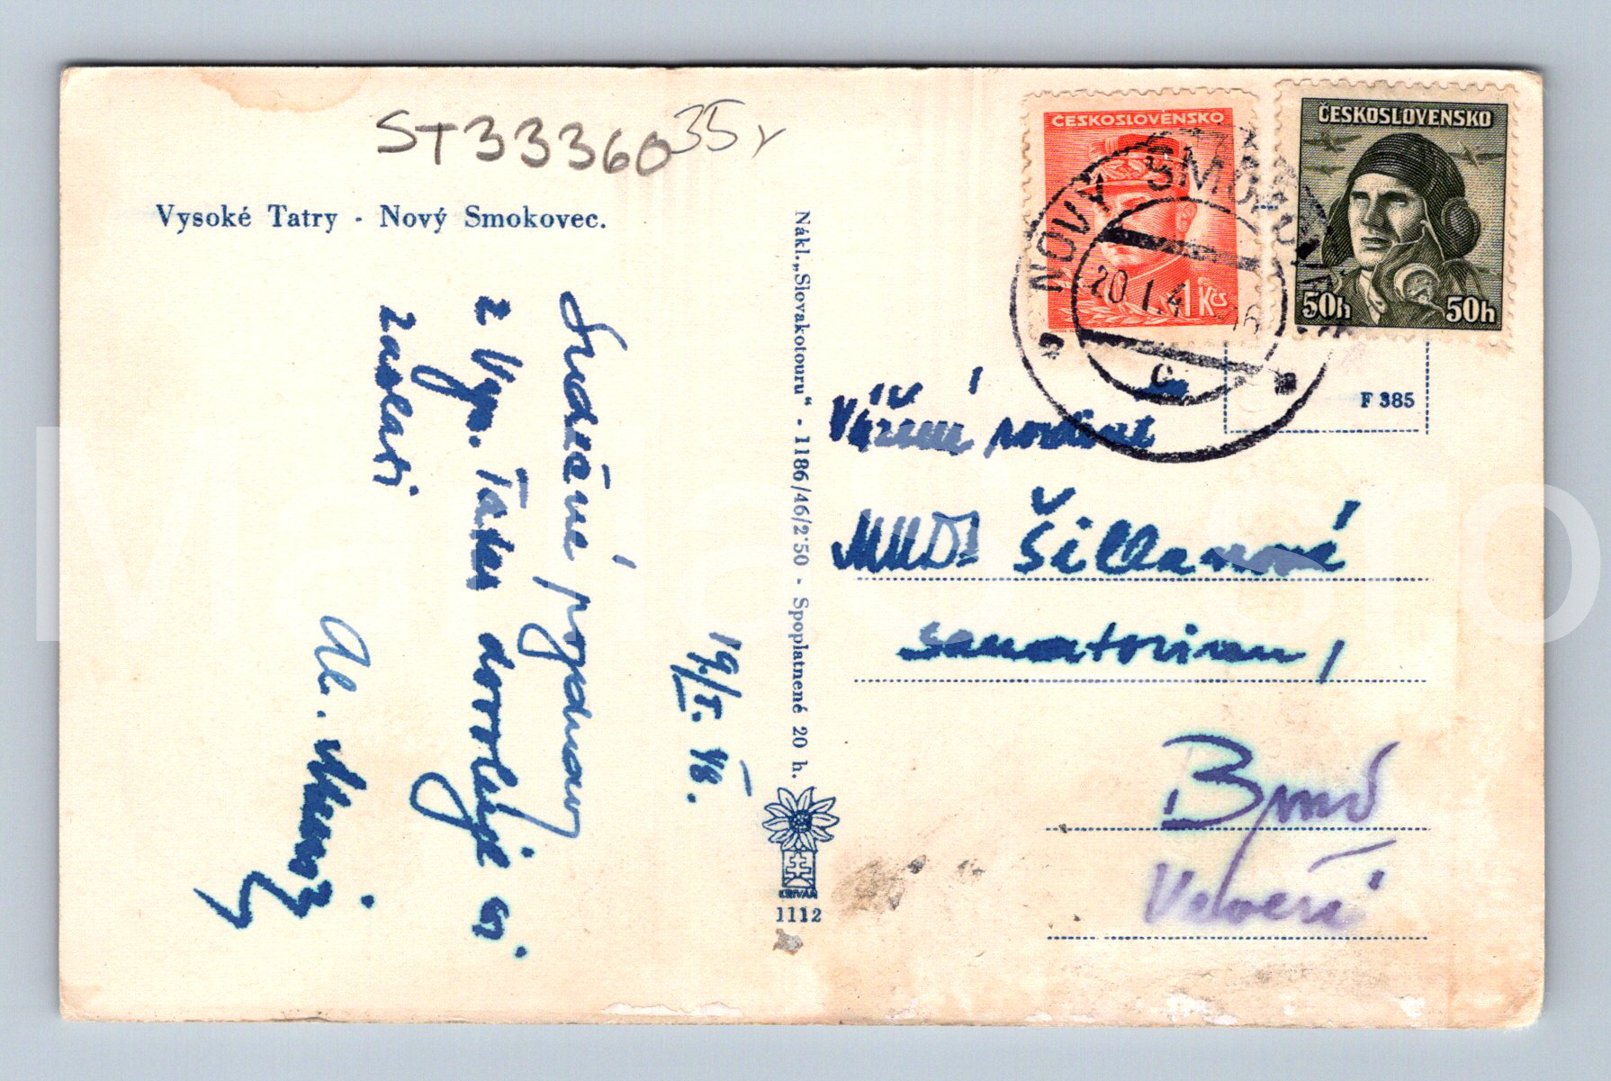 ST33360 35,-
Vysoké Tatry - Nový Smokovec.
ČESKOSLOVENSKO
1 Kčs
ČESKOSLOVENSKO
50h 50h
NOVÝ SMOKOVEC
20.I.4
c
F 385
Nákl. „Slovakotouru“ - 1186/46/2·50 - Spoplatnené 20 h.
KRIVÁŇ
1112
19/I. 48.
Srdečné pozdravy
z Vys. Tater dovoluje si
zaslati
Al.
Vážená rodina
MUDr Šillanové
sanatorium,
Brno
Veveří